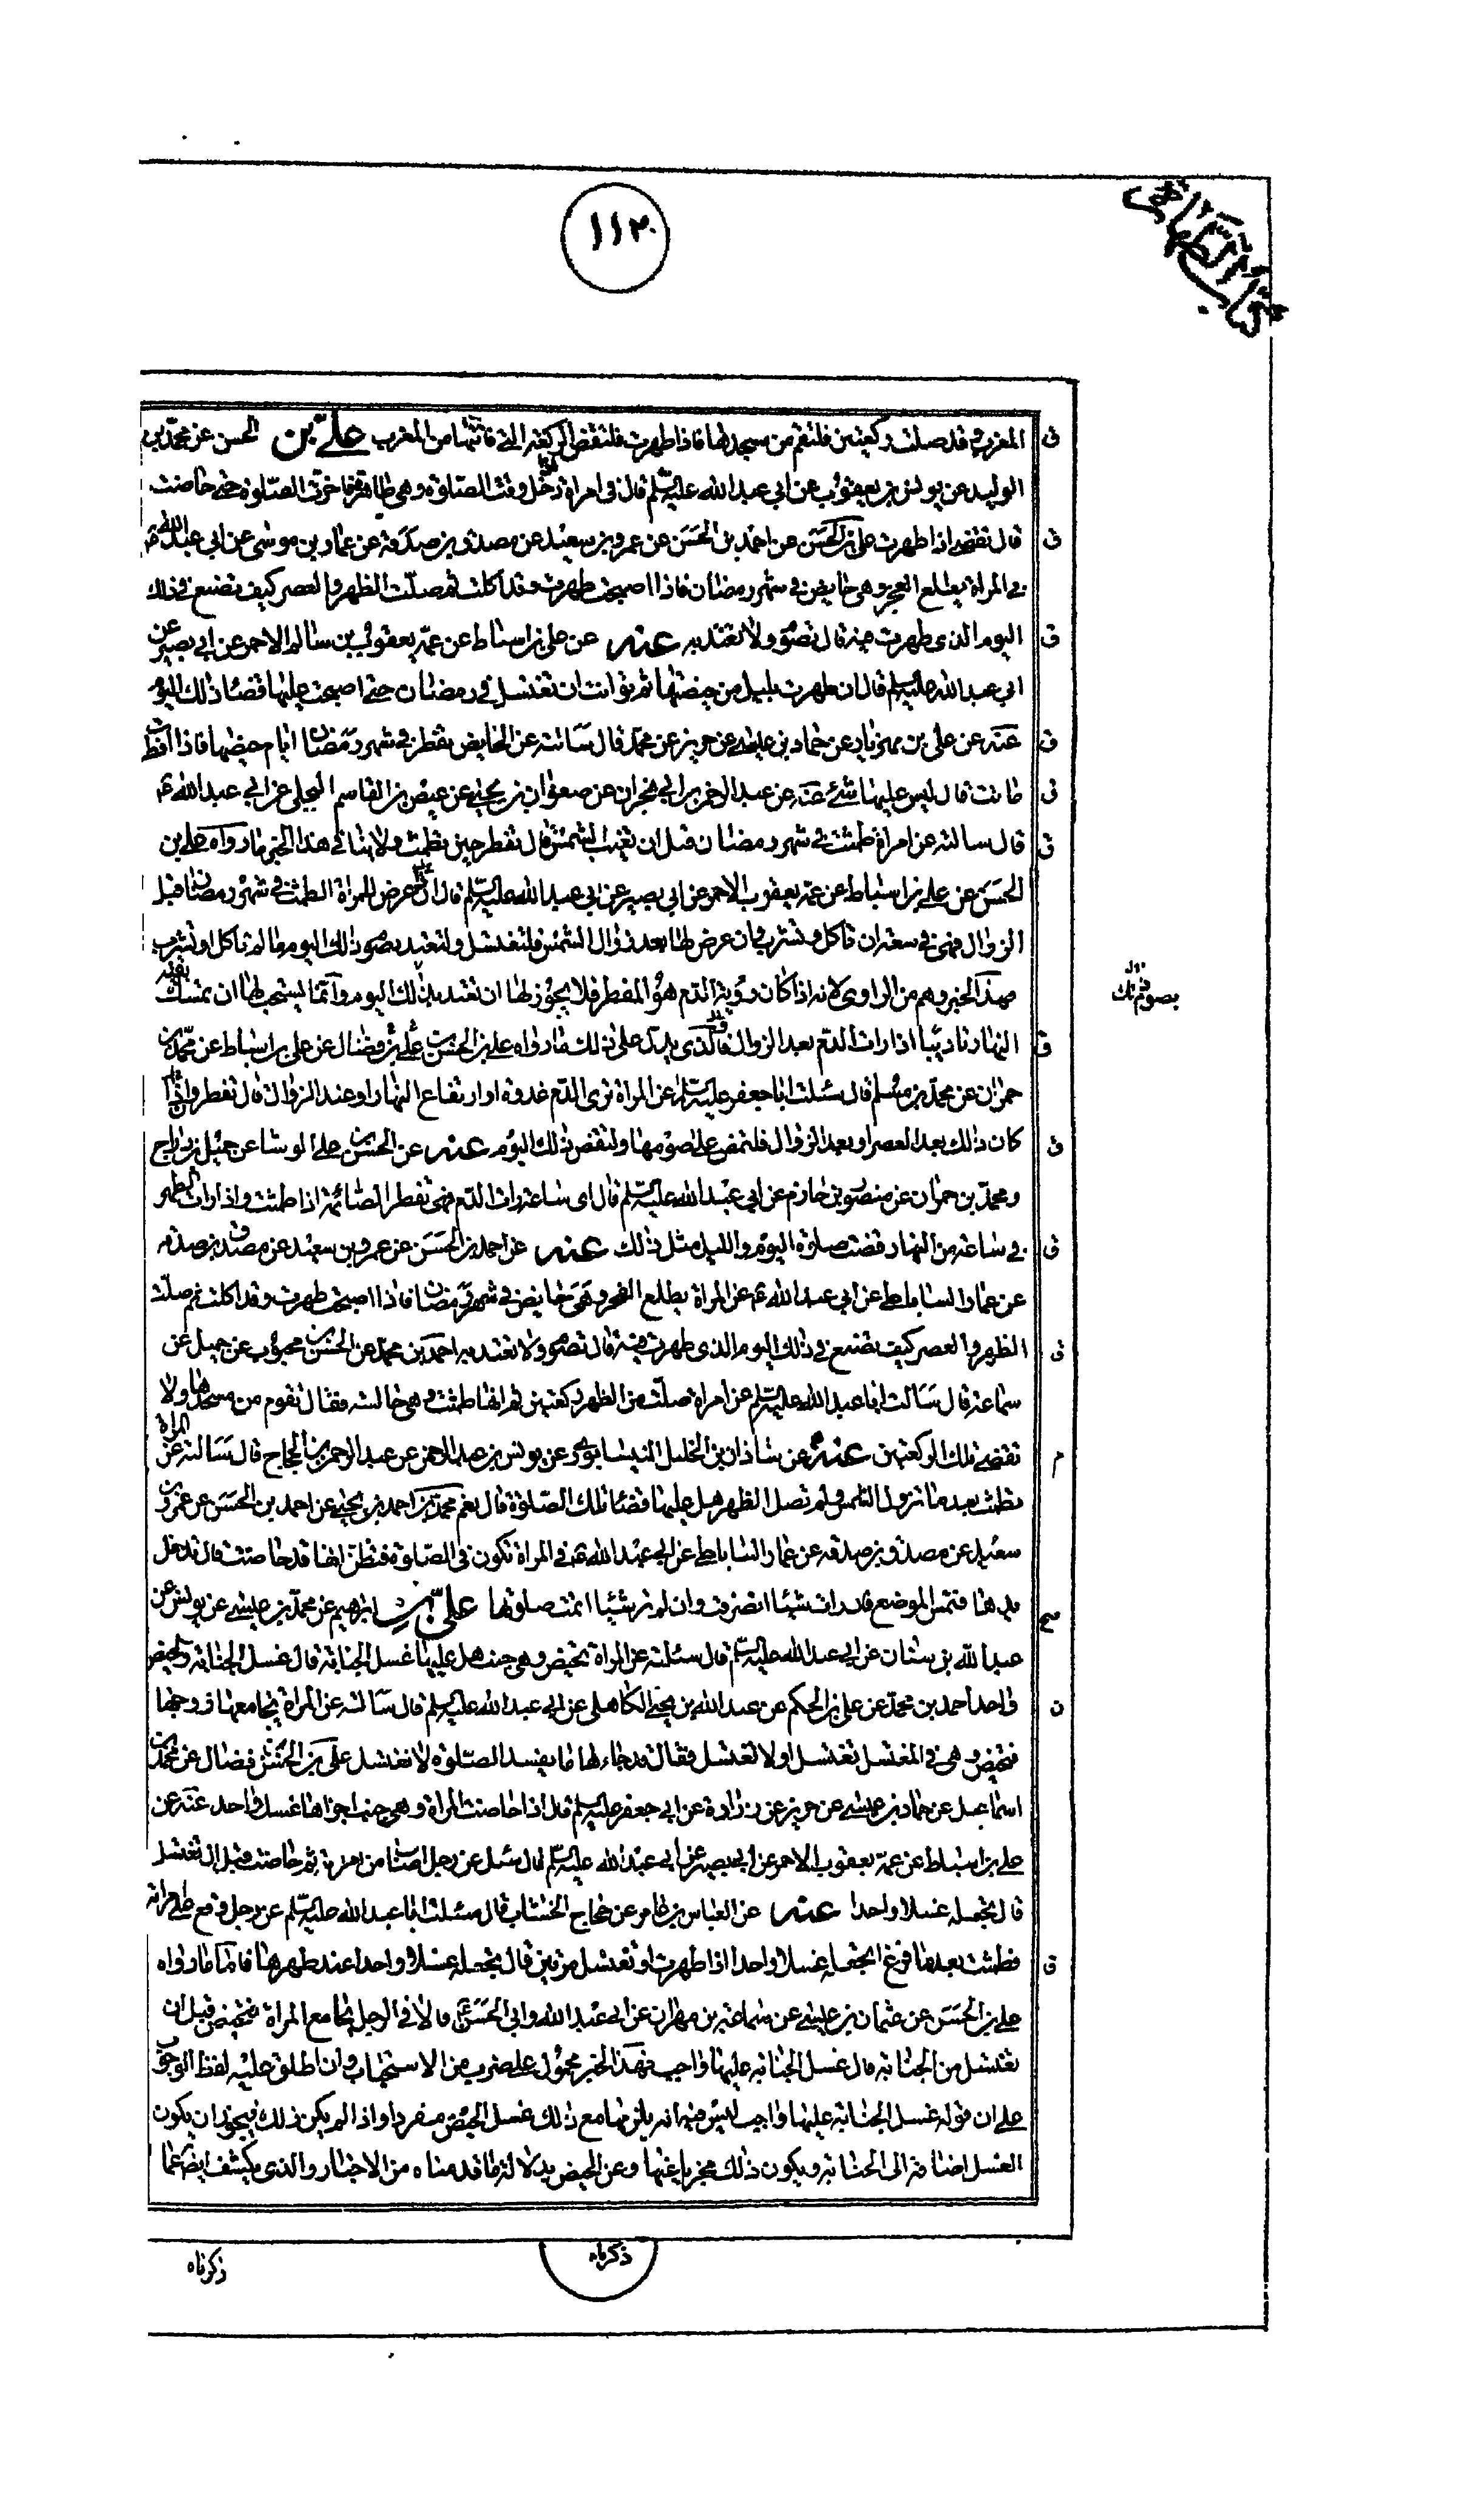 كتاب الطهارة
١١٢
المغرب وقد صلت ركعتين فلتقم من مسجدها فاذا طهرت فلتقض الركعة التي فاتتها من المغرب علي بن الحسن عن محمد بن
الوليد عن يونس بن يعقوب عن ابي عبد الله عليه السلم قال في امراة دخل وقت الصلوة وهي طاهرة فاخرت الصلوة حتى حاضت
قال تقضي اذا طهرت علي بن الحسن عن احمد بن الحسن عن عمرو بن سعيد عن مصدق بن صدقة عن عمار بن موسى عن ابي عبد الله ع
في المراة يطلع الفجر وهي حايض في شهر رمضان فاذا اصبحت طهرت وقد اكلت ثم صلت الظهر والعصر كيف تصنع في ذلك
اليوم الذي طهرت فيه قال تصوم ولا تعتد به عنه عن علي بن اسباط عن عمه يعقوب بن سالم الاحمر عن ابي بصير عن
ابي عبد الله عليه السلم قال ان طهرت بليل من حيضتها ثم توانت ان تغتسل في رمضان حتى اصبحت عليها قضاء ذلك اليوم
عنه عن علي بن مهزيار عن حماد بن عيسى عن حريز عن محمد قال سالته عن الحايض تفطر في شهر رمضان ايام حيضها فاذا افطرت
ماتت قال ليس عليها شئ عنه عن عبد الرحمن بن ابي نجران عن صفوان بن يحيى عن عيص بن القاسم البجلي عن ابي عبد الله ع
قال سالته عن امراة طمثت في شهر رمضان قبل ان تغيب الشمس قال تفطر حين تطمث ولا ينافي هذا الخبر ما رواه علي بن
الحسن عن علي بن اسباط عن عمه يعقوب الاحمر عن ابي بصير عن ابي عبد الله عليه السلم قال ان عرض للمراة الطمث في شهر رمضان قبل
الزوال فهي في سعة ان تاكل وتشرب وان عرض لها بعد زوال الشمس فلتغتسل ولتعتد بصوم ذلك اليوم ما لم تاكل او تشرب
فهذا الخبر وهم من الراوي لانه اذا كان رؤية الدم هو المفطر فلا يجوز لها ان تعتد بذلك اليوم وانما يستحب لها ان تمسك بقية
النهار تاديبا اذا رات الدم بعد الزوال والذي يدل على ذلك ما رواه علي بن الحسن بن علي بن فضال عن علي بن اسباط عن محمد بن
حمران عن محمد بن مسلم قال سئلت ابا جعفر عليه السلم عن المراة ترى الدم غدوة او ارتفاع النهار او عند الزوال قال تفطر واذا
كان ذلك بعد العصر او بعد الزوال فلتمض على صومها ولتقض ذلك اليوم عنه عن الحسن بن علي الوشا عن جميل بن دراج
ومحمد بن حمران عن منصور بن حازم عن ابي عبد الله عليه السلم قال اي ساعة رات الدم فهي تفطر الصائمة اذا طمثت واذا رات الطهر
في ساعة من النهار قضت صلوة اليوم والليل مثل ذلك عنه عن احمد بن الحسن عن عمرو بن سعيد عن مصدق بن صدقه
عن عمار الساباطي عن ابي عبد الله ع عن المراة يطلع الفجر وهي حايض في شهر رمضان فاذا اصبحت طهرت وقد اكلت ثم صلت
الظهر والعصر كيف تصنع في ذلك اليوم الذي طهرت فيه قال تصوم ولا تعتد به احمد بن محمد عن الحسن بن محبوب عن جميل عن
سماعة قال سالت ابا عبد الله عليه السلم عن امراة صلت من الظهر ركعتين ثم انها طمثت وهي جالسة فقال تقوم من مسجدها ولا
تقضي تلك الركعتين عنه عن شاذان بن الخليل النيسابوري عن يونس بن عبد الرحمن عن عبد الرحمن بن الحجاج قال سالته عن المراة
تطمث بعد ما تزول الشمس ولم تصل الظهر هل عليها قضاء تلك الصلوة قال نعم محمد بن احمد بن يحيى عن احمد بن الحسن عن عمرو بن
سعيد عن مصدق بن صدقه عن عمار الساباطي عن ابي عبد الله ع في المراة تكون في الصلوة فتظن انها قد حاضت قال تدخل
يدها فتمس الموضع فان رات شيئا انصرفت وان لم تر شيئا اتمت صلوتها علي بن ابرهيم عن محمد بن عيسى عن يونس عن
عبد الله بن سنان عن ابي عبد الله عليه السلم قال سئلته عن المراة تحيض وهي جنب هل عليها غسل الجنابة قال غسل الجنابة والحيض
واحد احمد بن محمد عن علي بن الحكم عن عبد الله بن يحيى الكاهلي عن ابي عبد الله عليه السلم قال سالته عن المراة يجامعها زوجها
فتحيض وهي في المغتسل تغتسل او لا تغتسل فقال قد جاءها ما يفسد الصلوة لا تغتسل علي بن الحسن بن فضال عن محمد بن
اسماعيل عن حماد بن عيسى عن حريز عن زرارة عن ابي جعفر عليه السلم قال اذا حاضت المراة وهي جنب اجزاها غسل واحد عنه عن
علي بن اسباط عن عمه يعقوب الاحمر عن ابي بصير عن ابي عبد الله عليه السلم قال سئل عن رجل اصاب من امراته ثم حاضت قبل ان تغتسل
قال تجعله غسلا واحدا عنه عن العباس بن عامر عن حجاج الخشاب قال سئلت ابا عبد الله عليه السلم عن رجل وقع على امراته
فطمثت بعد ما فرغ اتجعله غسلا واحدا اذا طهرت او تغتسل مرتين قال تجعله غسلا واحدا عند طهرها فاما ما رواه
علي بن الحسن عن عثمان بن عيسى عن سماعة بن مهران عن ابي عبد الله وابي الحسن ع قالا في الرجل يجامع المراة فتحيض قبل ان
تغتسل من الجنابة قال غسل الجنابة عليها واجب فهذا الخبر محمول على ضرب من الاستحباب وان اطلق عليه لفظ الوجوب
على ان قوله غسل الجنابة عليها واجب ليس فيه انه يلزمها مع ذلك غسل الحيض منفردا واذا لم يكن ذلك فيجوز ان يكون
الغسل اضافة الى الجنابة ويكون ذلك مجزيا عنها وعن الحيض بدلالة ما قدمناه من الاخبار والذي يكشف ايضا عما
ذكرناه
ذكرناه